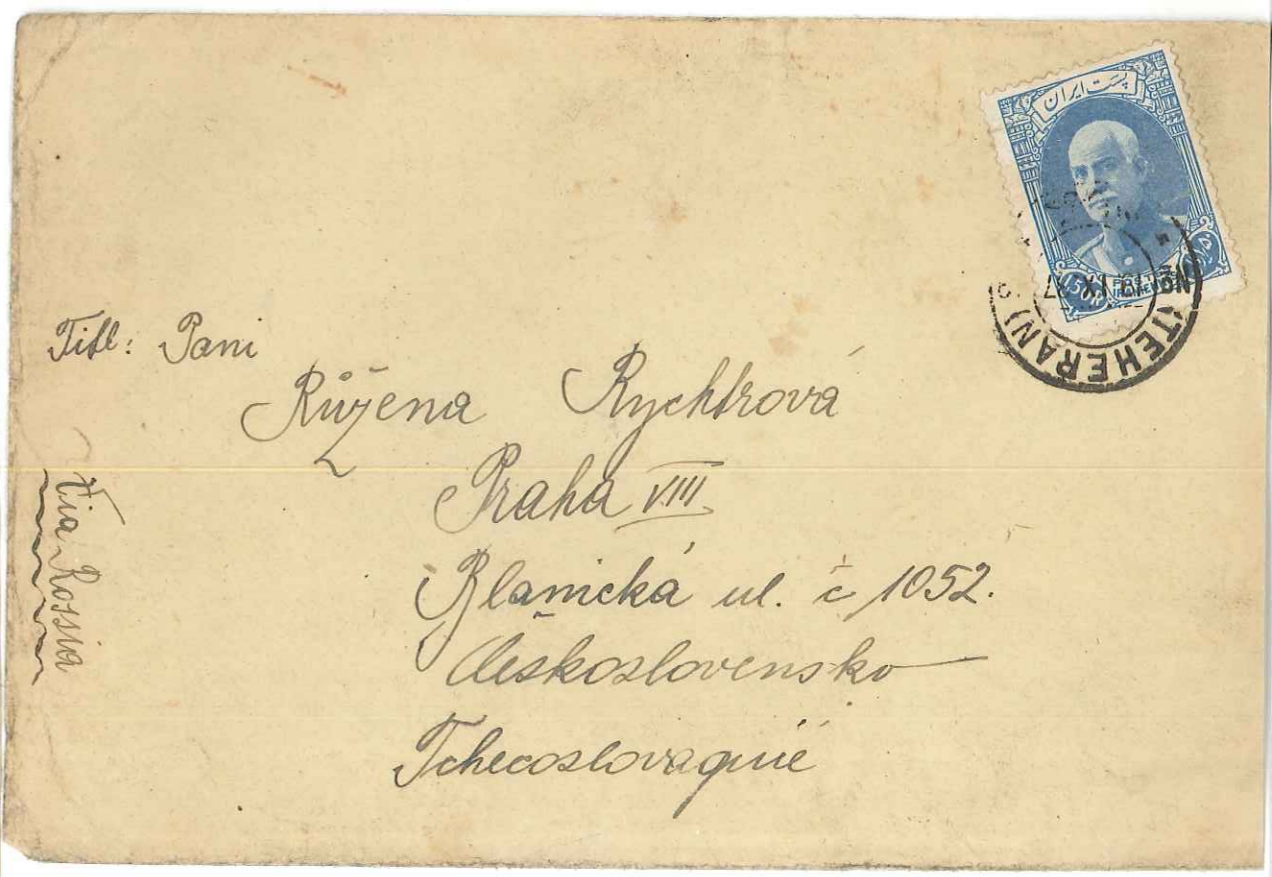 پست ایران
(TEHERAN)
Titl: Pani
Růžena Rychtrová
Praha VIII
Blanická ul. č 1052.
Československo
Tchecoslovaquie
Via Rossia